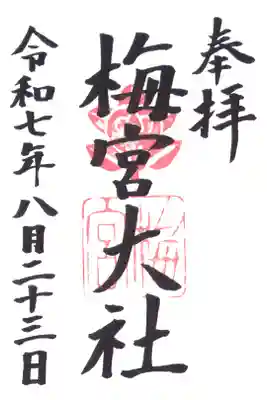 奉拝
梅宮大社
梅宮
令和七年八月二十三日